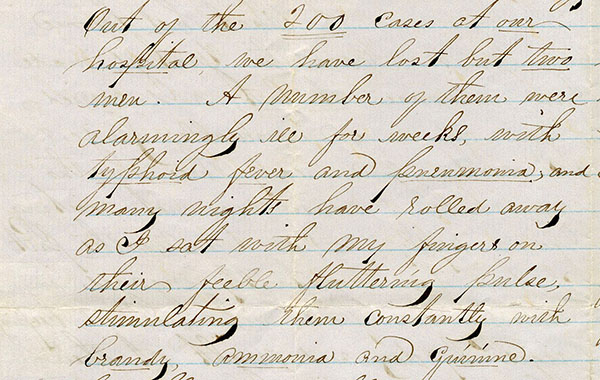 Out of the 200 cases at our
hospital, we have lost but two
men. A number of them were
alarmingly ill for weeks, with
typhoid fever and pneumonia, and
many nights have rolled away
as I sat with my fingers on
their feeble fluttering pulse,
stimulating them constantly with
brandy, ammonia and quinine.